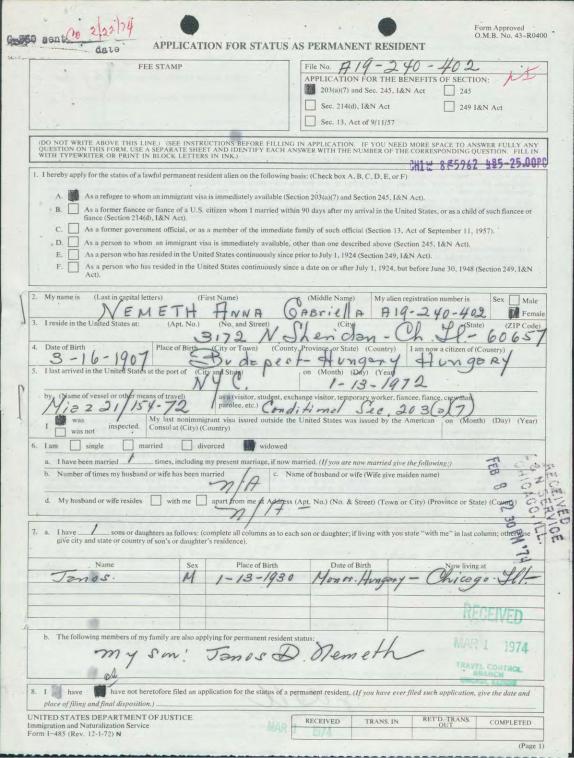 G-360 sent Co 2/22/74
date
Form Approved
O.M.B. No. 43-R0400
APPLICATION FOR STATUS AS PERMANENT RESIDENT
FEE STAMP
File No. A19-240-402
APPLICATION FOR THE BENEFITS OF SECTION:
203(a)(7) and Sec. 245, I&N Act 245
Sec. 214(d), I&N Act 249 I&N Act
Sec. 13, Act of 9/11/57
(DO NOT WRITE ABOVE THIS LINE.) (SEE INSTRUCTIONS BEFORE FILLING IN APPLICATION. IF YOU NEED MORE SPACE TO ANSWER FULLY ANY
QUESTION ON THIS FORM, USE A SEPARATE SHEET AND IDENTIFY EACH ANSWER WITH THE NUMBER OF THE CORRESPONDING QUESTION. FILL IN
WITH TYPEWRITER OR PRINT IN BLOCK LETTERS IN INK.)
1. I hereby apply for the status of a lawful permanent resident alien on the following basis: (Check box A, B, C, D, E, or F)
A. As a refugee to whom an immigrant visa is immediately available (Section 203(a)(7) and Section 245, I&N Act).
B. As a former fiancee or fiance of a U.S. citizen whom I married within 90 days after my arrival in the United States, or as a child of such fiancee or
fiance (Section 214(d), I&N Act).
C. As a former government official, or as a member of the immediate family of such official (Section 13, Act of September 11, 1957).
D. As a person to whom an immigrant visa is immediately available, other than one described above (Section 245, I&N Act).
E. As a person who has resided in the United States continuously since prior to July 1, 1924 (Section 249, I&N Act).
F. As a person who has resided in the United States continuously since a date on or after July 1, 1924, but before June 30, 1948 (Section 249, I&N
Act).
2. My name is (Last in capital letters) (First Name) (Middle Name) My alien registration number is Sex Male
NEMETH ANNA GABRIELLA A19-240-402 Female
3. I reside in the United States at: (Apt. No.) (No. and Street) (City) (State) (ZIP Code)
3172 N Sheridan - Ch. Il - 60657
4. Date of Birth Place of Birth (City or Town) (County, Province or State) (Country) I am now a citizen of (Country)
3-16-1907 Budapest-Hungary Hungary
5. I last arrived in the United States at the port of (City and State) on (Month) (Day) (Year)
NYC. 1-13-1972
by (Name of vessel or other means of travel) as a (visitor, student, exchange visitor, temporary worker, fiancee, fiance, crewman,
parolee, etc.) Conditional Sec. 203(a)(7)
I was My last nonimmigrant visa issued outside the United States was issued by the American on (Month) (Day) (Year)
was not inspected. Consul at (City) (Country)
6. I am single married divorced widowed
a. I have been married 1 times, including my present marriage, if now married. (If you are now married give the following:)
b. Number of times my husband or wife has been married c. Name of husband or wife (Wife give maiden name)
N/A
d. My husband or wife resides with me apart from me at Address (Apt. No.) (No. & Street) (Town or City) (Province or State) (Country)
N/A -
RECEIVED
I & N SERVICE
CHICAGO, ILL.
FEB 8 12 30 PM '74
7. a. I have 1 sons or daughters as follows: (complete all columns as to each son or daughter; if living with you state "with me" in last column; otherwise
give city and state or country of son's or daughter's residence).
Name Sex Place of Birth Date of Birth Now living at
Janos. M 1-13-1930 Hungary - Chicago. Ill-
RECEIVED
MAR 1 1974
TRAVEL CONTROL
BRANCH
b. The following members of my family are also applying for permanent resident status:
my son: Janos D. Nemeth
8. I have have not heretofore filed an application for the status of a permanent resident. (If you have ever filed such application, give the date and
place of filing and final disposition.)
UNITED STATES DEPARTMENT OF JUSTICE
Immigration and Naturalization Service
Form I-485 (Rev. 12-1-72) N
RECEIVED TRANS. IN RET'D-TRANS. OUT COMPLETED
MAR 1974
(Page 1)